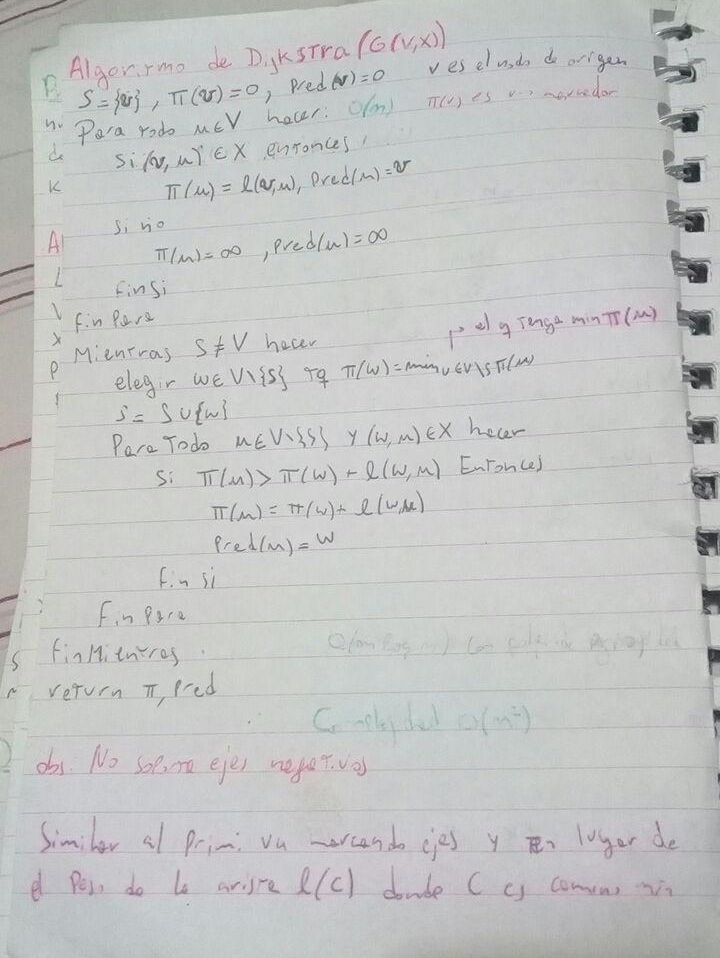 Algoritmo de Dijkstra (G(V,X))
S={v}, π(v)=0, Pred(v)=0 v es el nodo de origen
Para todo u∈V hacer: O(n) π(v) es
Si (v,u) ∈ X entonces
π(u) = l(v,u), Pred(u)=v
Si no
π(u)=∞, Pred(u)=∞
Fin Si
Fin Para
Mientras S≠V hacer el q tenga min π(u)
elegir w∈V\{S} Tq π(w)=min u∈V\S π(u)
S= S∪{w}
Para Todo u∈V\{S} y (w,u)∈X hacer
Si π(u)> π(w) + l(w,u) Entonces
π(u) = π(w)+ l(w,u)
Pred(u)= w
Fin si
Fin Para
Fin Mientras
return π, Pred
Complejidad O(n²)
obs. No soporta ejes negativos
Similar al Prim. va marcando ejes y en lugar de
el Peso de la arista l(C) donde C es camino min